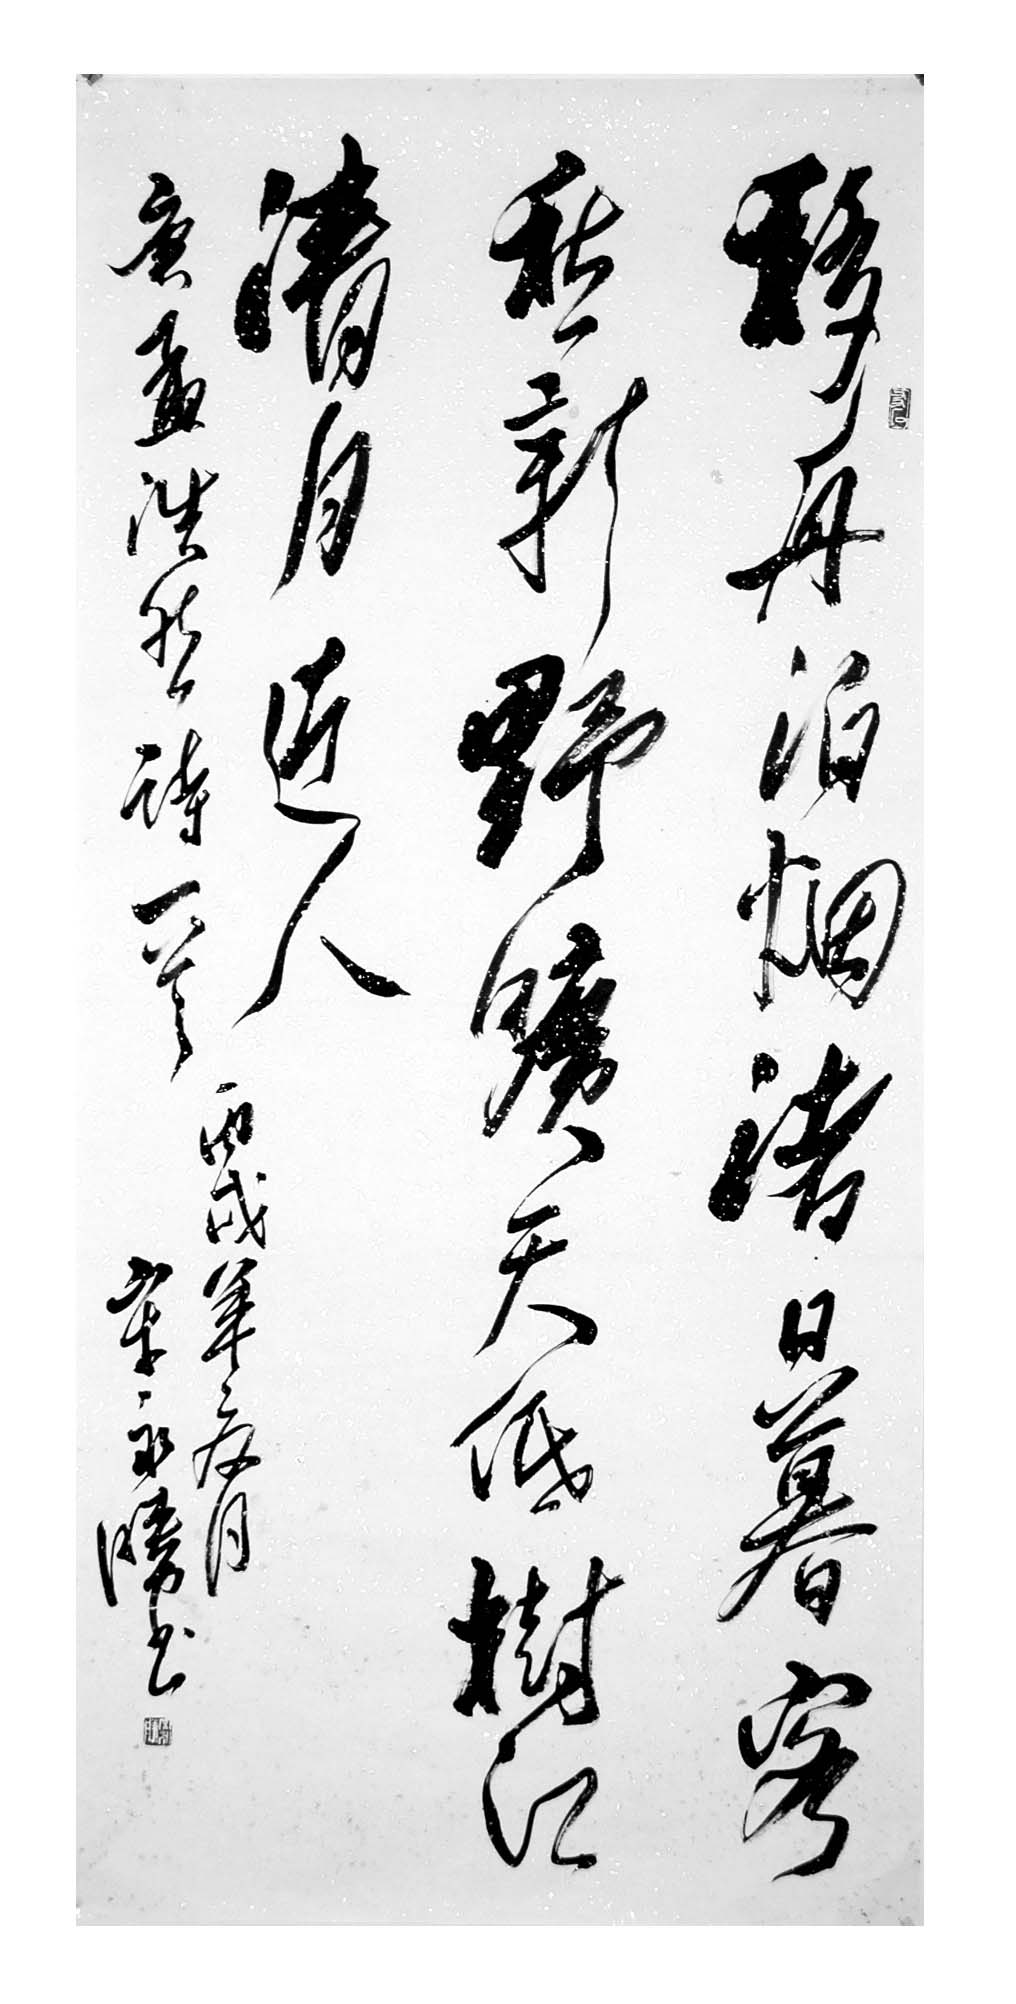 移舟泊烟渚日暮客
愁新野曠天低樹江
清月近人
唐孟浩然詩一首
丙戌年夏月
永暉书